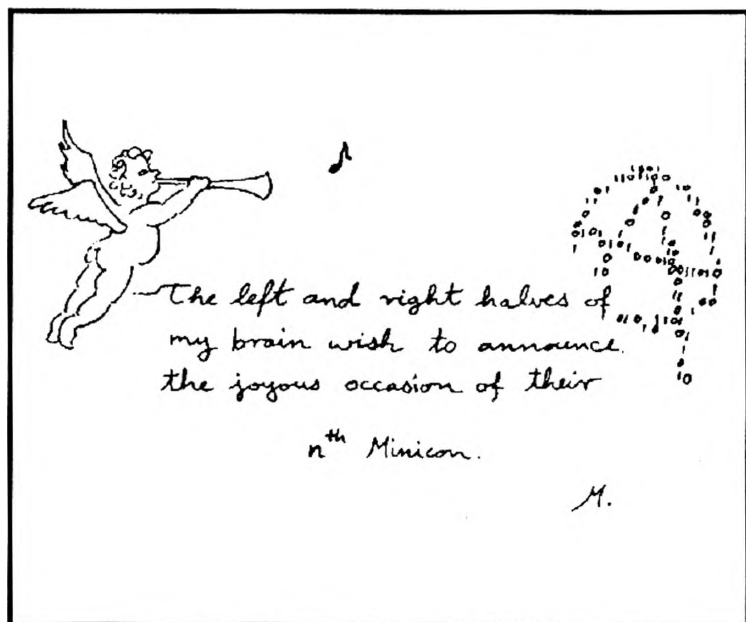 The left and right halves of
my brain wish to announce
the joyous occasion of their
nth Minicon.
M.